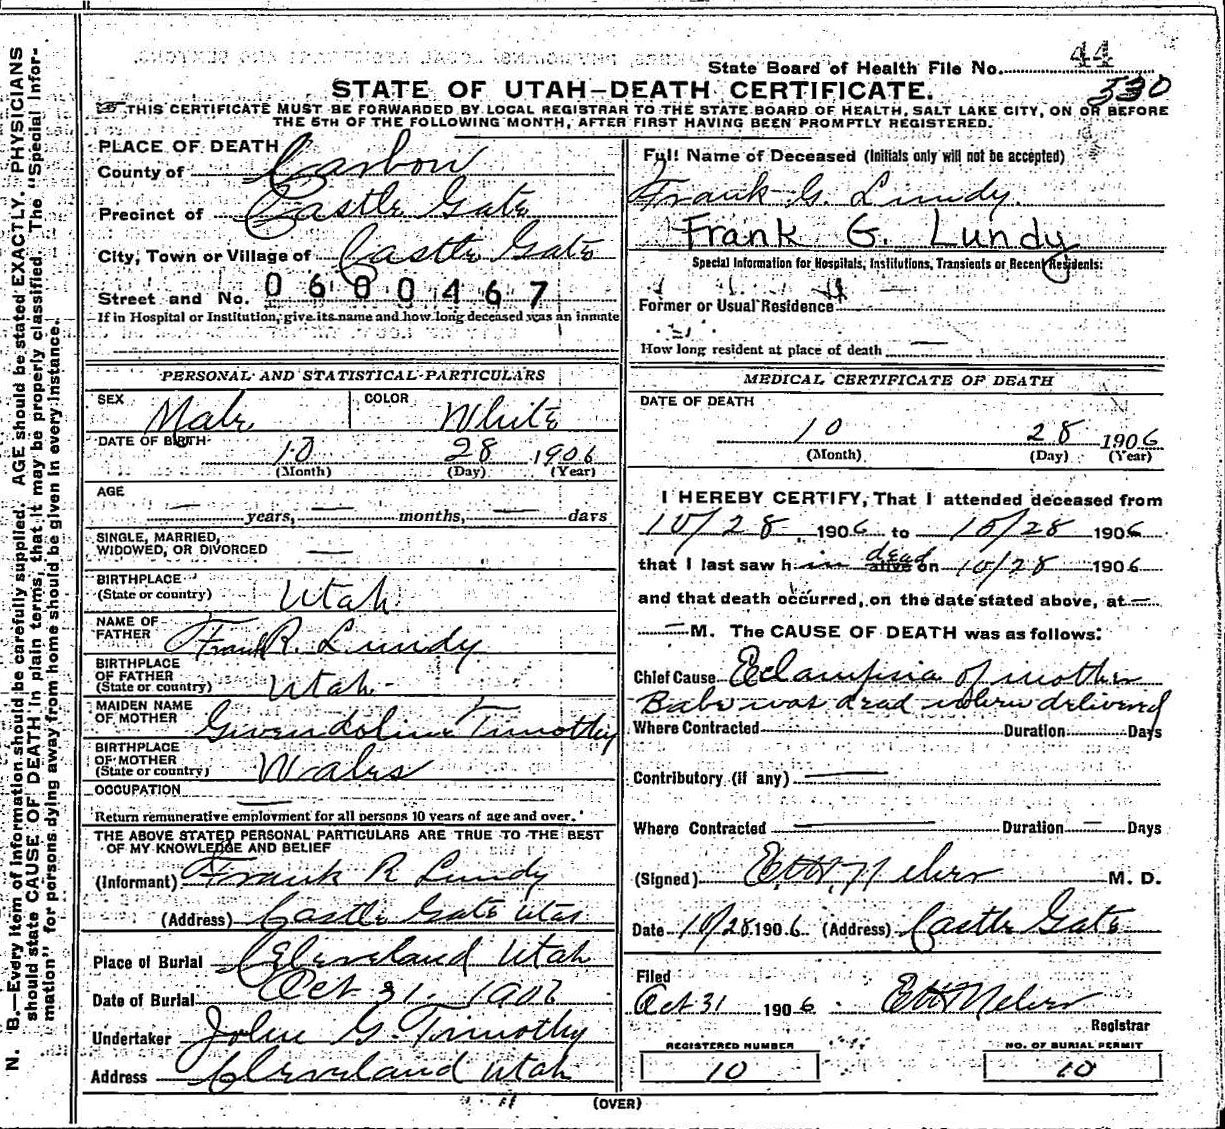 State Board of Health File No. 44
STATE OF UTAH—DEATH CERTIFICATE. 530
THIS CERTIFICATE MUST BE FORWARDED BY LOCAL REGISTRAR TO THE STATE BOARD OF HEALTH, SALT LAKE CITY, ON OR BEFORE
THE 5TH OF THE FOLLOWING MONTH, AFTER FIRST HAVING BEEN PROMPTLY REGISTERED.
PLACE OF DEATH
County of Carbon
Precinct of Castle Gate
City, Town or Village of Castle Gate
Street and No. 0600467
If in Hospital or Institution, give its name and how long deceased was an inmate
PERSONAL AND STATISTICAL PARTICULARS
SEX Male COLOR White
DATE OF BIRTH
10 28 1906
(Month) (Day) (Year)
AGE
— years, — months, — days
SINGLE, MARRIED,
WIDOWED, OR DIVORCED —
BIRTHPLACE
(State or country) Utah
NAME OF
FATHER Frank R. Lundy
BIRTHPLACE
OF FATHER
(State or country) Utah
MAIDEN NAME
OF MOTHER Gwendoline Timothy
BIRTHPLACE
OF MOTHER
(State or country) Wales
OCCUPATION —
Return remunerative employment for all persons 10 years of age and over.
THE ABOVE STATED PERSONAL PARTICULARS ARE TRUE TO THE BEST
OF MY KNOWLEDGE AND BELIEF
(Informant) Frank R Lundy
(Address) Castle Gate Utah
Place of Burial Cleveland Utah
Date of Burial Oct 31 1906
Undertaker John G. Timothy
Address Cleveland Utah
Full Name of Deceased (Initials only will not be accepted)
Frank G. Lundy.
Frank G. Lundy
Special Information for Hospitals, Institutions, Transients or Recent Residents:
Former or Usual Residence —
How long resident at place of death —
MEDICAL CERTIFICATE OF DEATH
DATE OF DEATH
10 28 1906
(Month) (Day) (Year)
I HEREBY CERTIFY, That I attended deceased from
10/28 1906 to 10/28 1906
that I last saw h im dead alive on 10/28 1906
and that death occurred, on the date stated above, at —
— M. The CAUSE OF DEATH was as follows:
Chief Cause Eclampsia of mother
Babe was dead when delivered
Where Contracted Duration Days
Contributory (if any) —
Where Contracted — Duration — Days
(Signed) M. D.
Date 10/28 1906 (Address) Castle Gate
Filed
Oct 31 1906
Registrar
REGISTERED NUMBER
10
NO. OF BURIAL PERMIT
10
(OVER)
N. B.—Every item of information should be carefully supplied. AGE should be stated EXACTLY. PHYSICIANS
should state CAUSE OF DEATH in plain terms, that it may be properly classified. The "Special Infor-
mation" for persons dying away from home should be given in every instance.